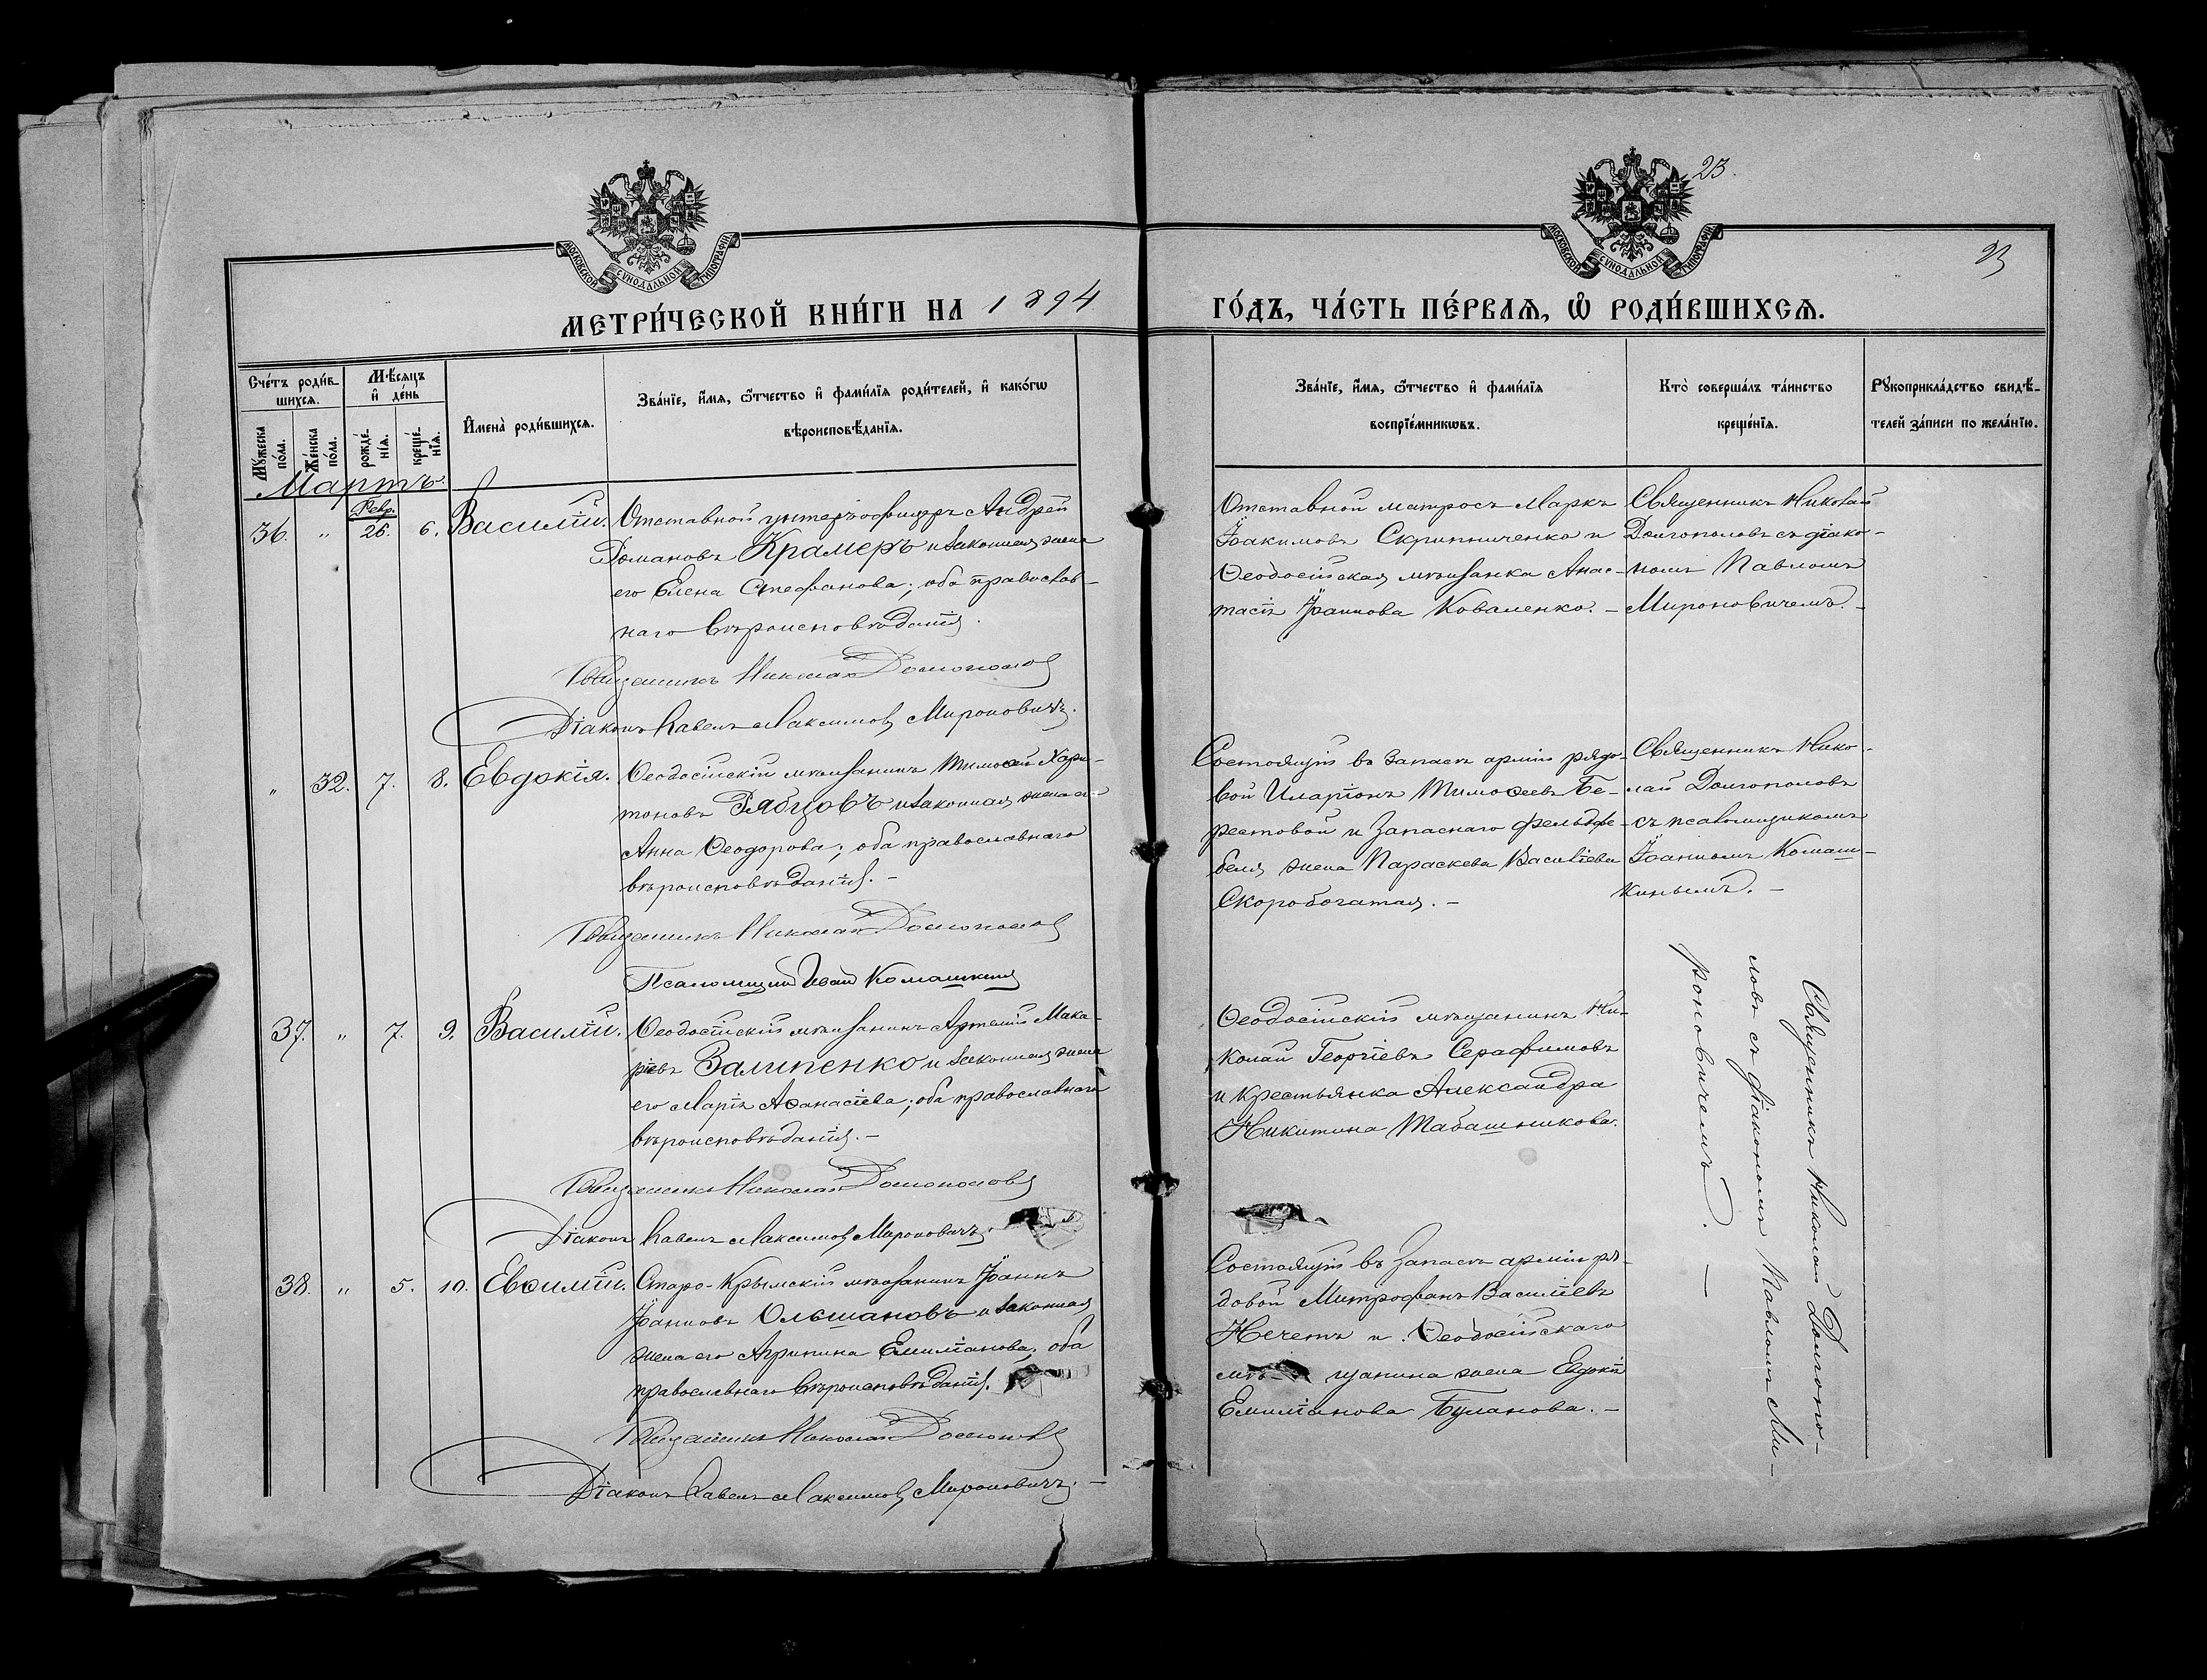 23.
23
МОСКОВСКОЙ СѴНОДАЛЬНОЙ ТИПОГРАФІИ
МОСКОВСКОЙ СѴНОДАЛЬНОЙ ТИПОГРАФІИ
МЕТРИ́ЧЕСКОЙ КНИ́ГИ НА 1894
ГО́ДЪ, ЧА́СТЬ ПЕ́РВАѦ, Ѡ҆ РОДИ́ВШИХСѦ.
Сче́тъ роди́в-
шихсѧ.
Мꙋ́жеска
по́ла.
Же́нска
по́ла.
Мѣ́сѧцъ
и҆ де́нь
рожде́-
нїѧ.
креще́-
нїѧ.
И҆мена̀ роди́вшихсѧ.
Зва́нїе, и҆́мѧ, ѻ҆́тчество и҆ фами́лїѧ роди́телей, и҆ како́гѡ
вѣроисповѣ́данїѧ.
Зва́нїе, и҆́мѧ, ѻ҆́тчество и҆ фами́лїѧ
воспрїе́мникѡвъ.
Кто̀ соверша́лъ та́инство
креще́нїѧ.
Рꙋкоприкла́дство свидѣ́-
телей за́писи по жела́нїю.
Мартъ.
36.
"
Февр.
26.
6.
Василій.
Отставной унтеръ-офицеръ Андрей
Романовъ Крамеръ и законная жена
его Елена Стефанова; оба православ-
наго вѣроисповѣданія.
Священникъ Николай Долгополовъ
Діаконъ Павелъ Максимовъ Мироновичъ.
Отставной матросъ Маркъ
Іоакимовъ Скрипниченко и
Ѳеодосійская мѣщанка Анас-
тасія Іоаннова Коваленко. –
Священникъ Николай
Долгополовъ съ діако-
номъ Павломъ
Мироновичемъ. –
"
32.
7.
8.
Евдокія.
Ѳеодосійскій мѣщанинъ Тимоѳей Хари-
тоновъ Рябцовъ и законная жена его
Анна Ѳеодорова; оба православнаго
вѣроисповѣданія. –
Священникъ Николай Долгополовъ
Псаломщикъ Иванъ Комашкинъ
Состоящій въ запасѣ арміи рядо-
вой Иларіонъ Тимоѳеевъ Бе-
рестовой и запаснаго фельдфе-
беля жена Параскева Василіева
Скоробогатая. –
Священникъ Нико-
лай Долгополовъ
съ псаломщикомъ
Іоанномъ Комаш-
кинымъ. –
37.
"
7.
9.
Василій.
Ѳеодосійскій мѣщанинъ Артемій Мака-
ріевъ Залипенко и законная жена
его Марія Аѳанасіева; оба православнаго
вѣроисповѣданія. –
Священникъ Николай Долгополовъ
Діаконъ Павелъ Максимовъ Мироновичъ.
Ѳеодосійскій мѣщанинъ Ни-
колай Георгіевъ Серафимовъ
и крестьянка Александра
Никитина Табашникова.
Священникъ Николай Долгопо-
ловъ съ діакономъ Павломъ Ми-
роновичемъ. –
38.
"
5.
10.
Евѳимій.
Старо-Крымскій мѣщанинъ Іоаннъ
Іоанновъ Ольшановъ и законная
жена его Агрипина Емиліанова; оба
православнаго вѣроисповѣданія.
Священникъ Николай Долгополовъ
Діаконъ Павелъ Максимовъ Мироновичъ. –
Состоящій въ запасѣ арміи ря-
довой Митрофанъ Василіевъ
Нечетъ и Ѳеодосійскаго
мѣ щанина жена Евдокія
Емиліанова Буланова. –